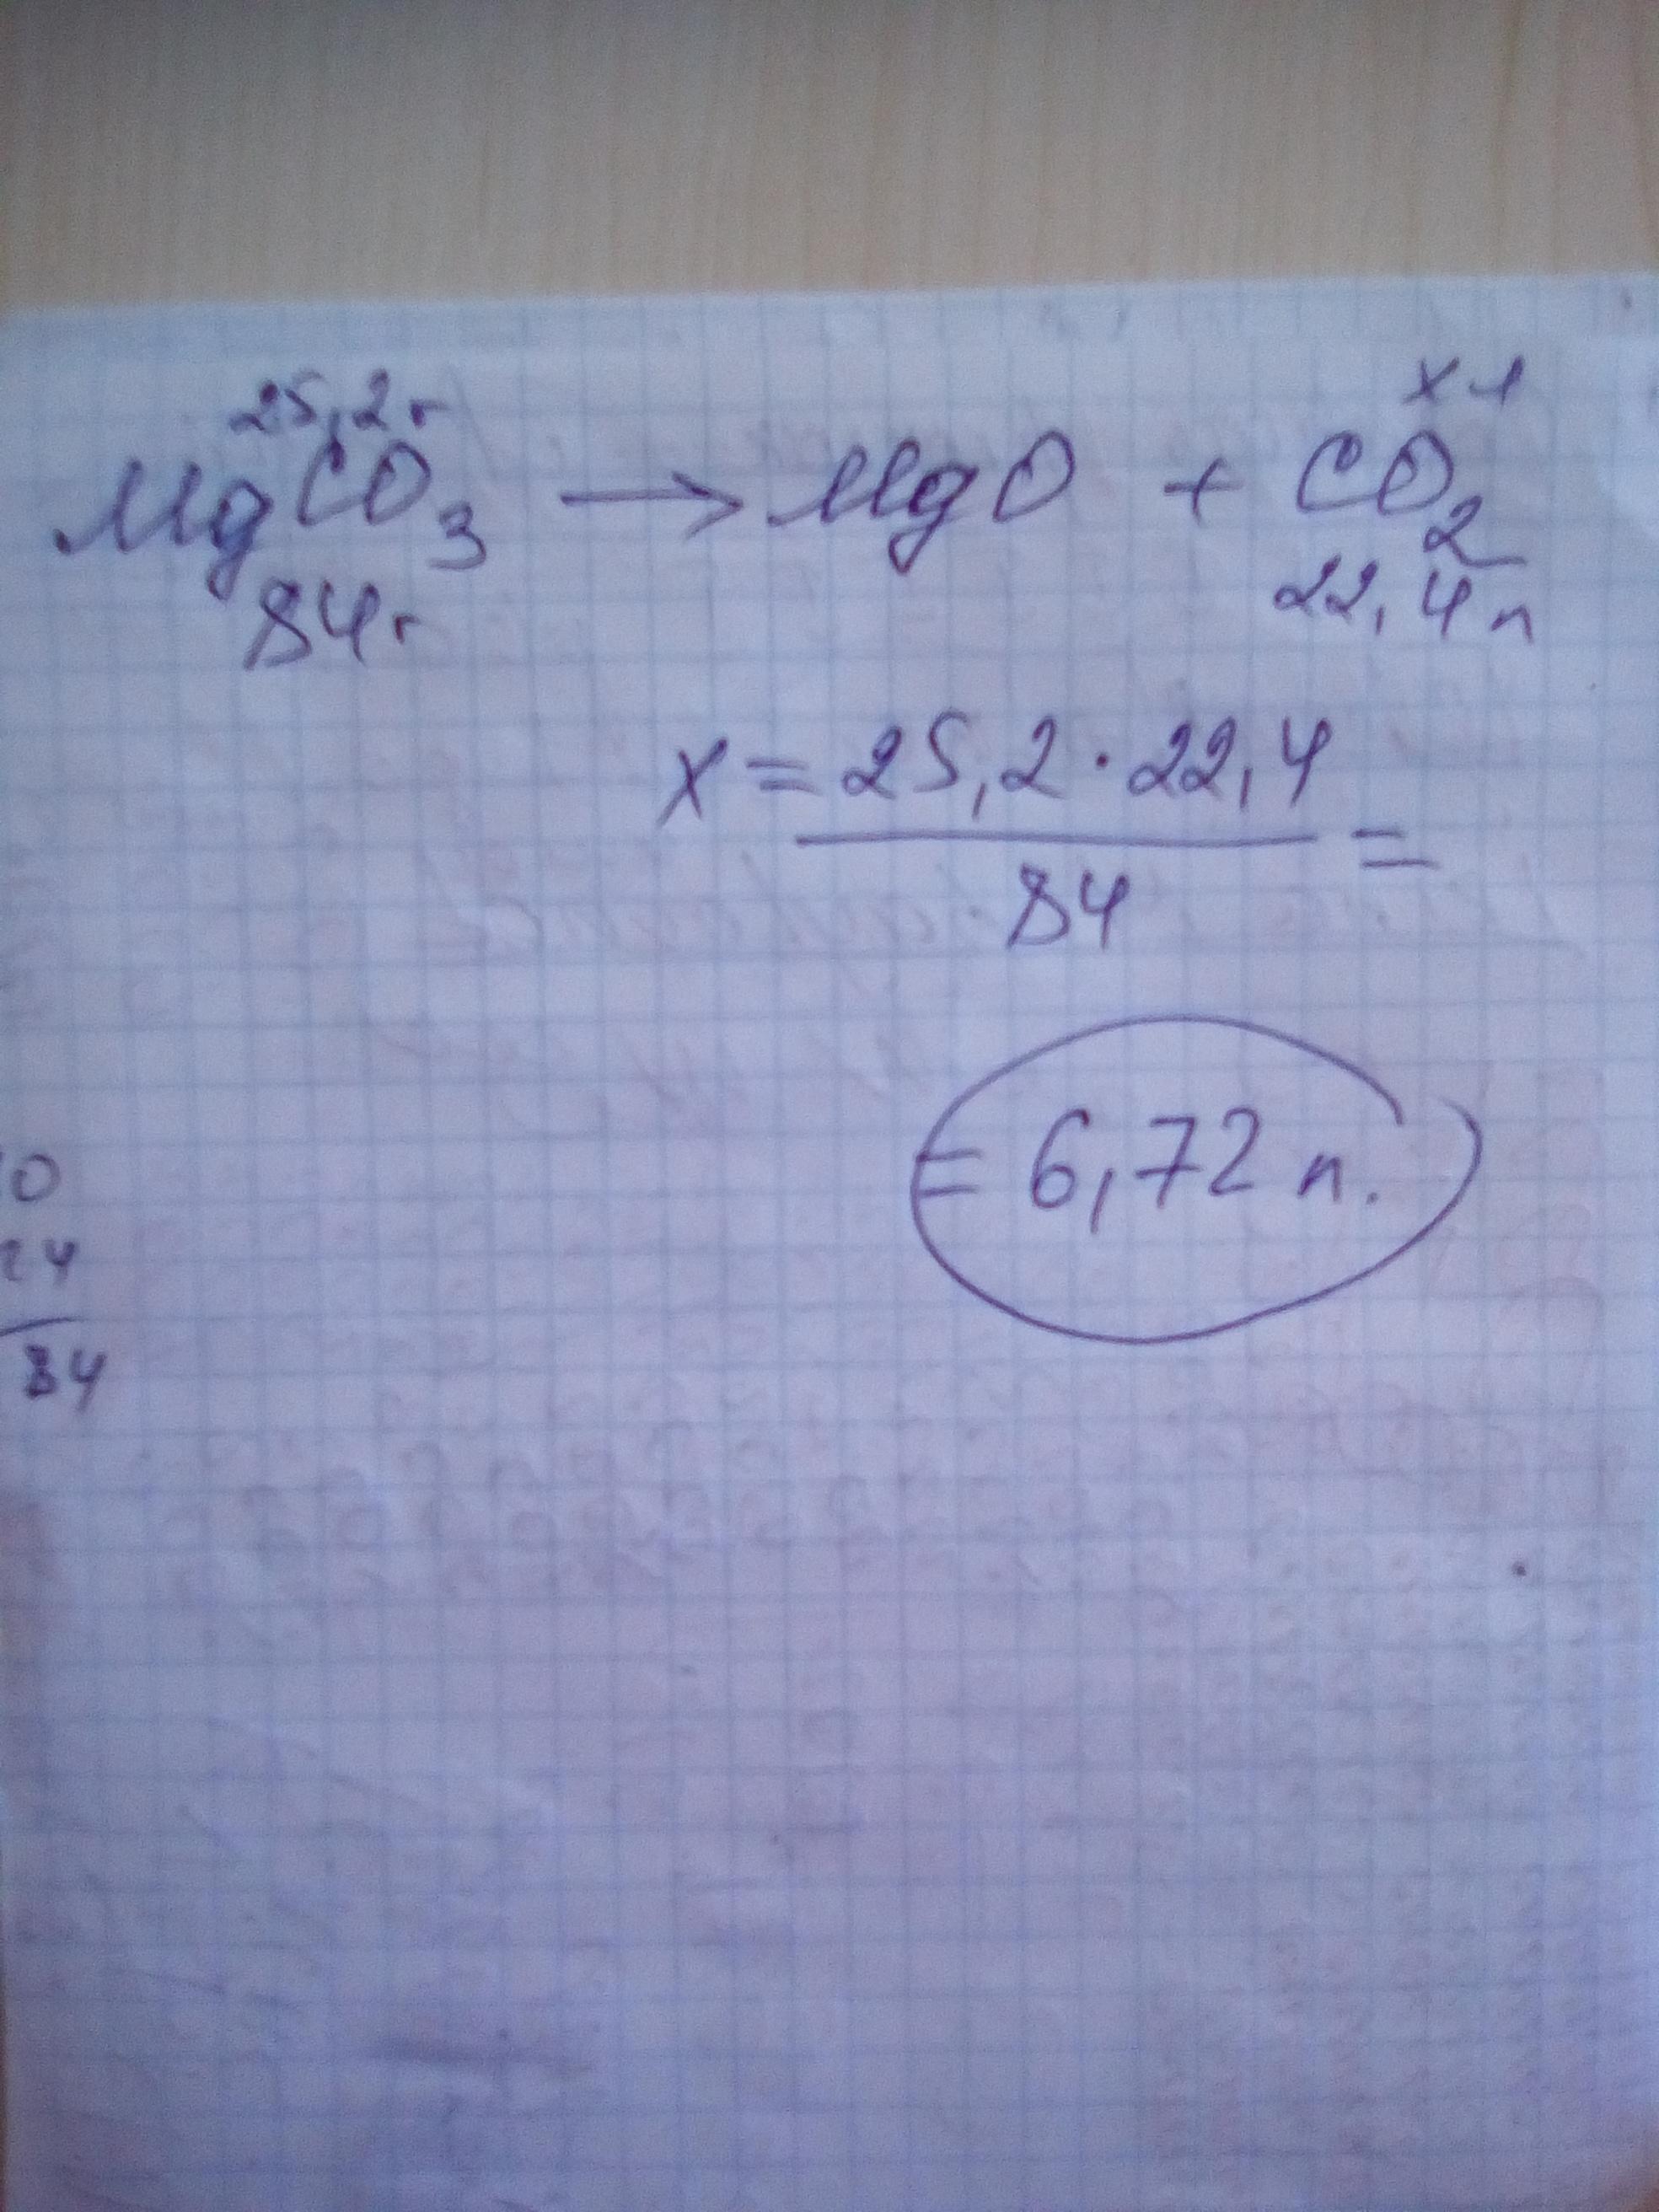 25,2г x л
MgCO₃ → MgO + CO₂
84г 22,4 л
x = 25,2 · 22,4 / 84 =
= 6,72 л.
0
24
84